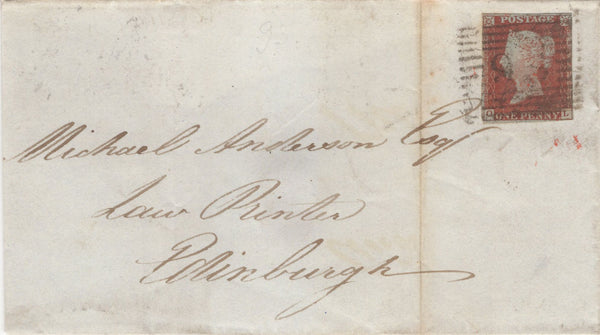 POSTAGE
ONE PENNY
L
Michael Anderson Esq
Law Printer
Edinburgh